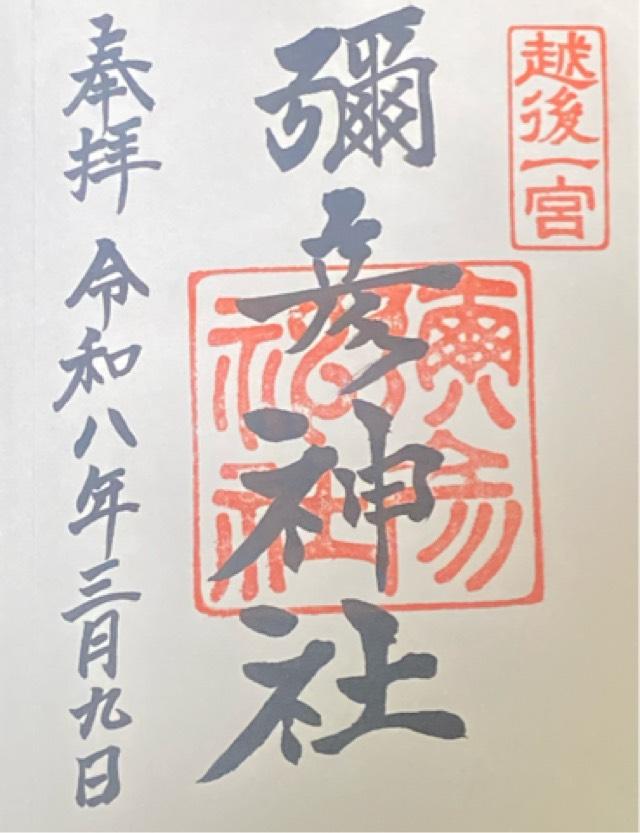 越後一宮
彌彦神社
奉拝 令和八年三月九日